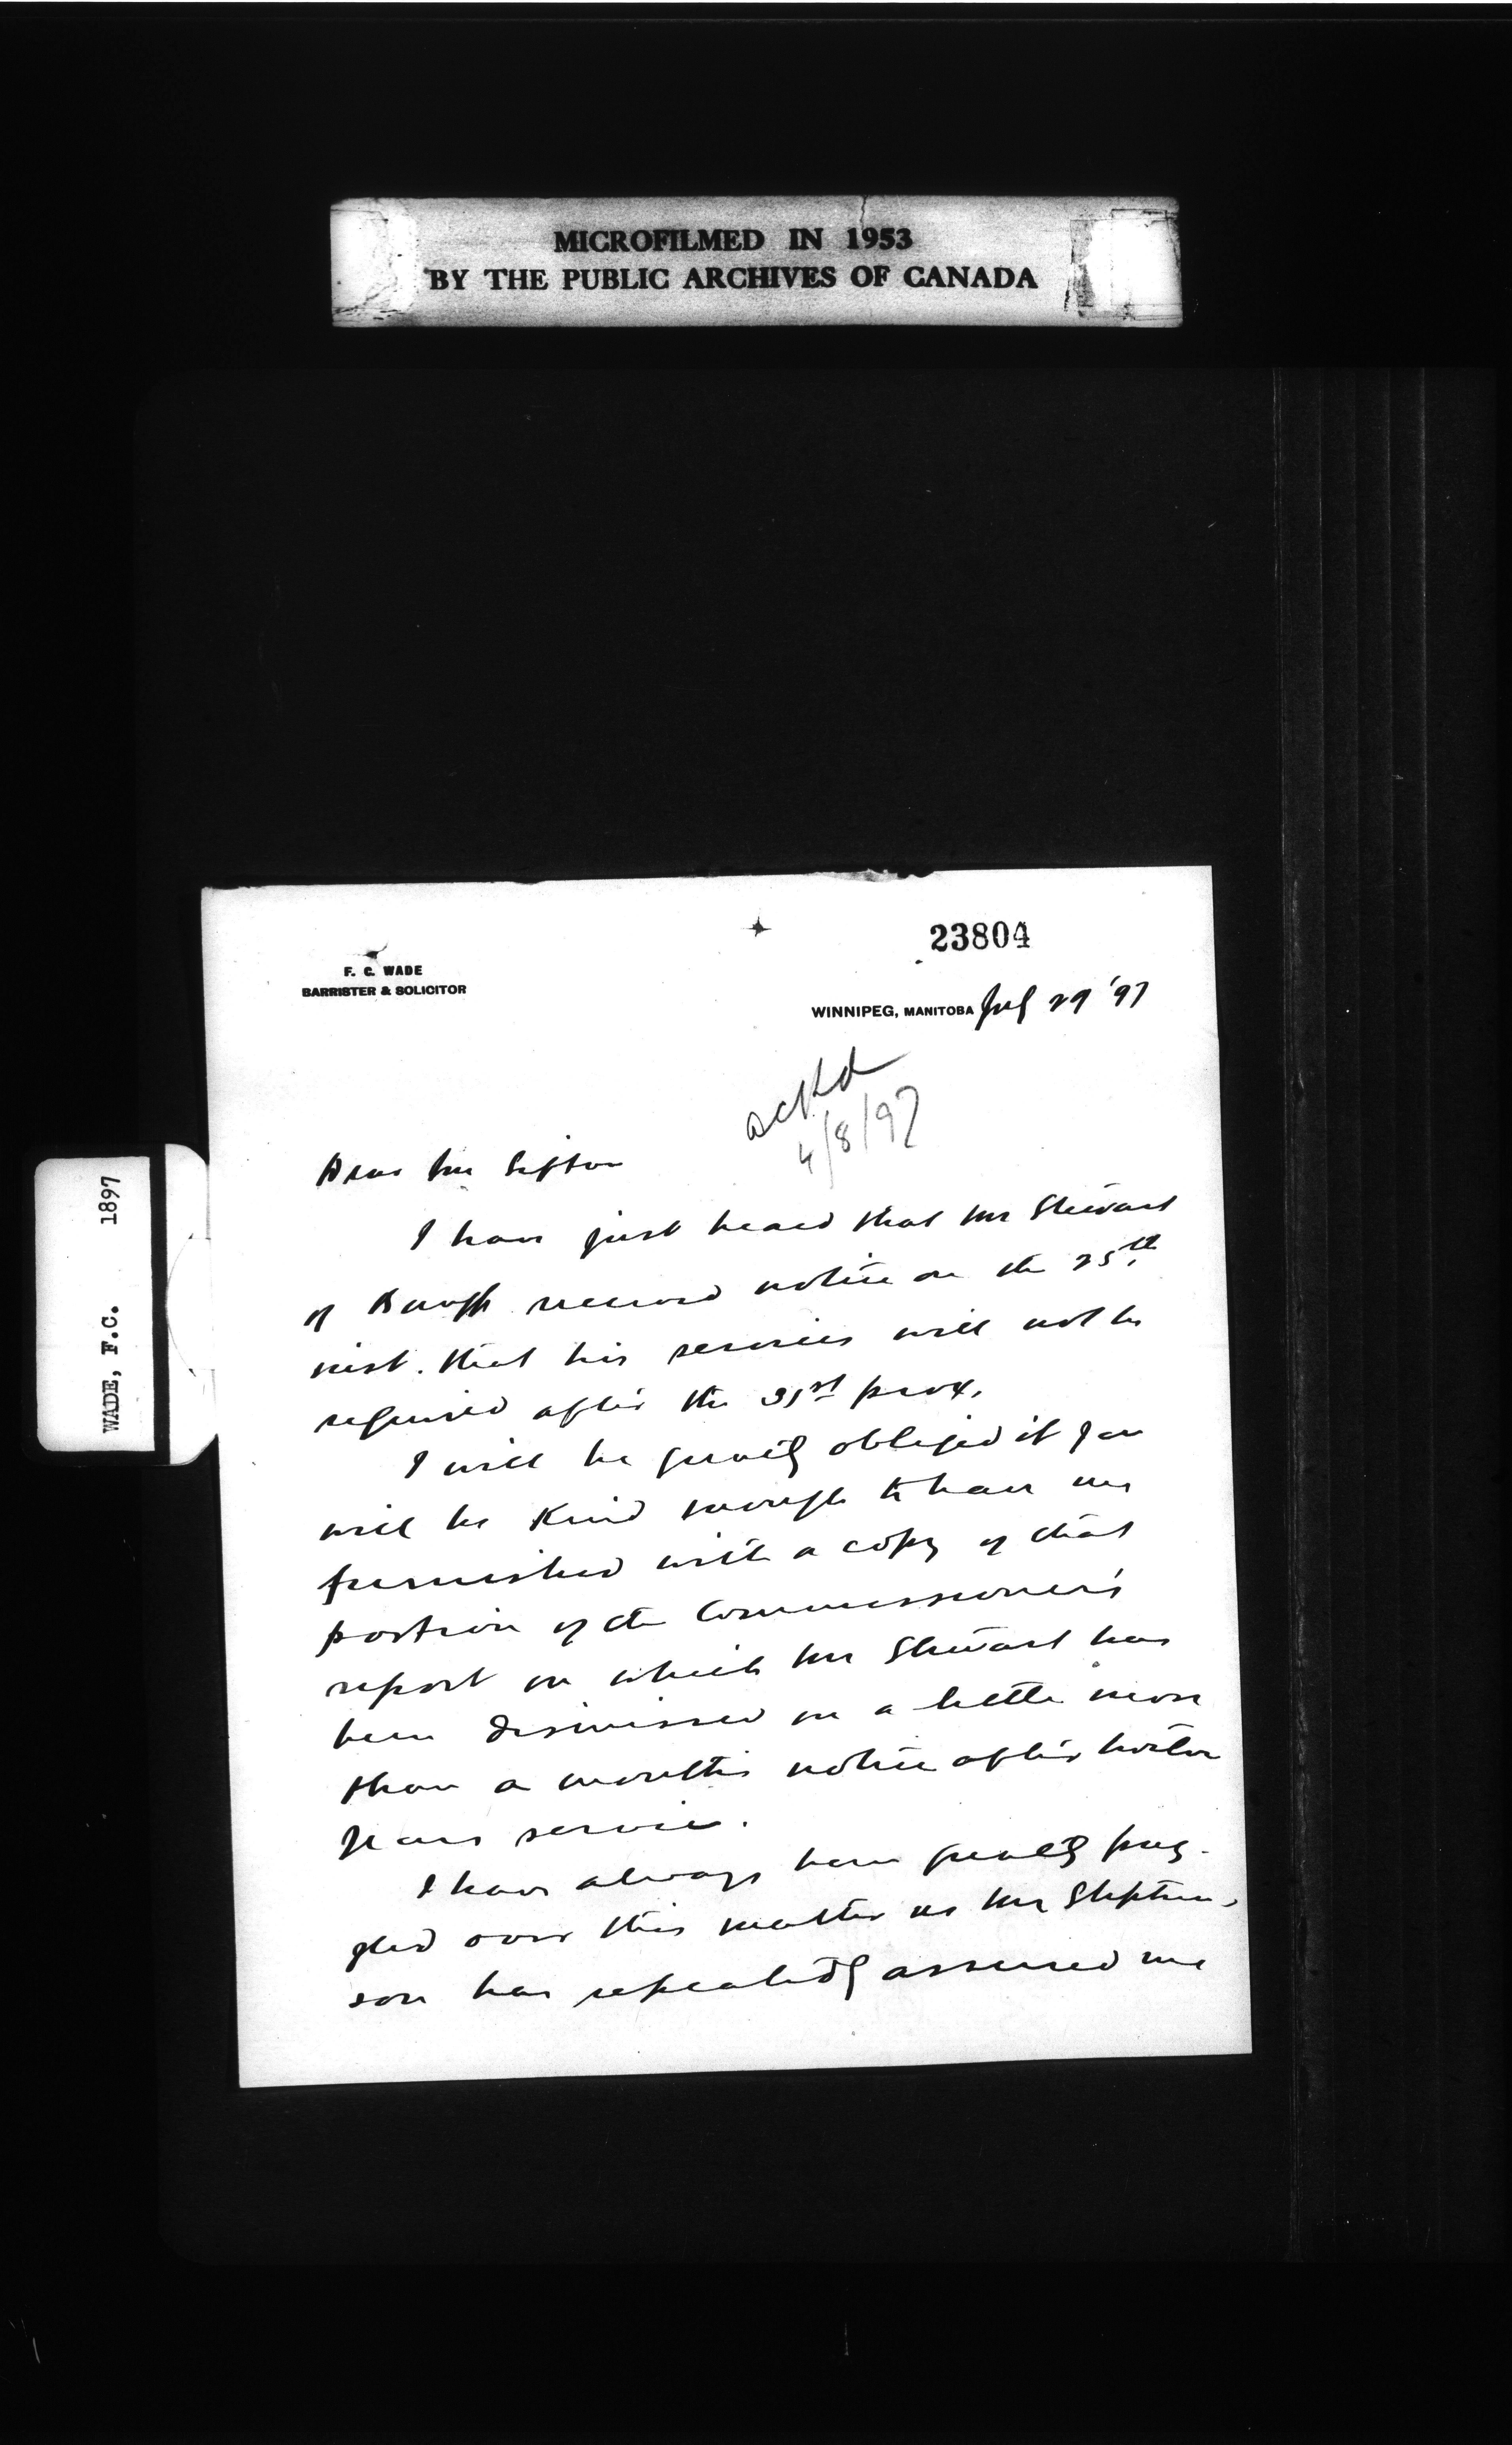 MICROFILMED IN 1953
BY THE PUBLIC ARCHIVES OF CANADA
23804
F. C. WADE
BARRISTER & SOLICITOR
WINNIPEG, MANITOBA July 29 '97
ackd
4/8/97
WADE, F.C. 1897
Dear Mr Sifton
I have just heard that Mr Stewart
of Banff received notice on the 25th
inst. that his services will not be
required after the 31st prox.
I will be greatly obliged if you
will be kind enough to have me
furnished with a copy of that
portion of the Commissioner's
report on which Mr Stewart has
been dismissed on a little more
than a month's notice after
years service.
I have always been greatly puz-
zled over this matter as Mr Stephen-
son has repeatedly assured me